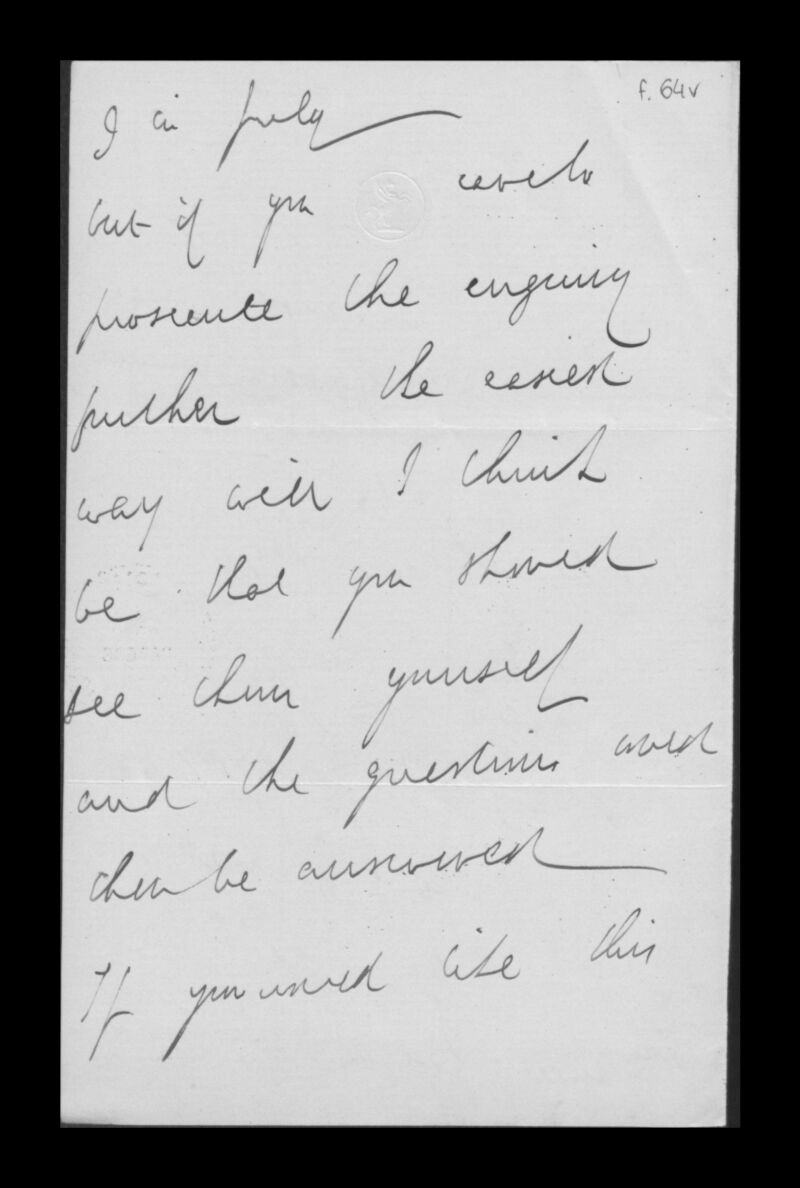 f. 64v
I in
but if you care to
prosecute the enquiry
further the easiest
way will I think
be that you should
see them yourself
and the questions could
then be answered
If you would like this